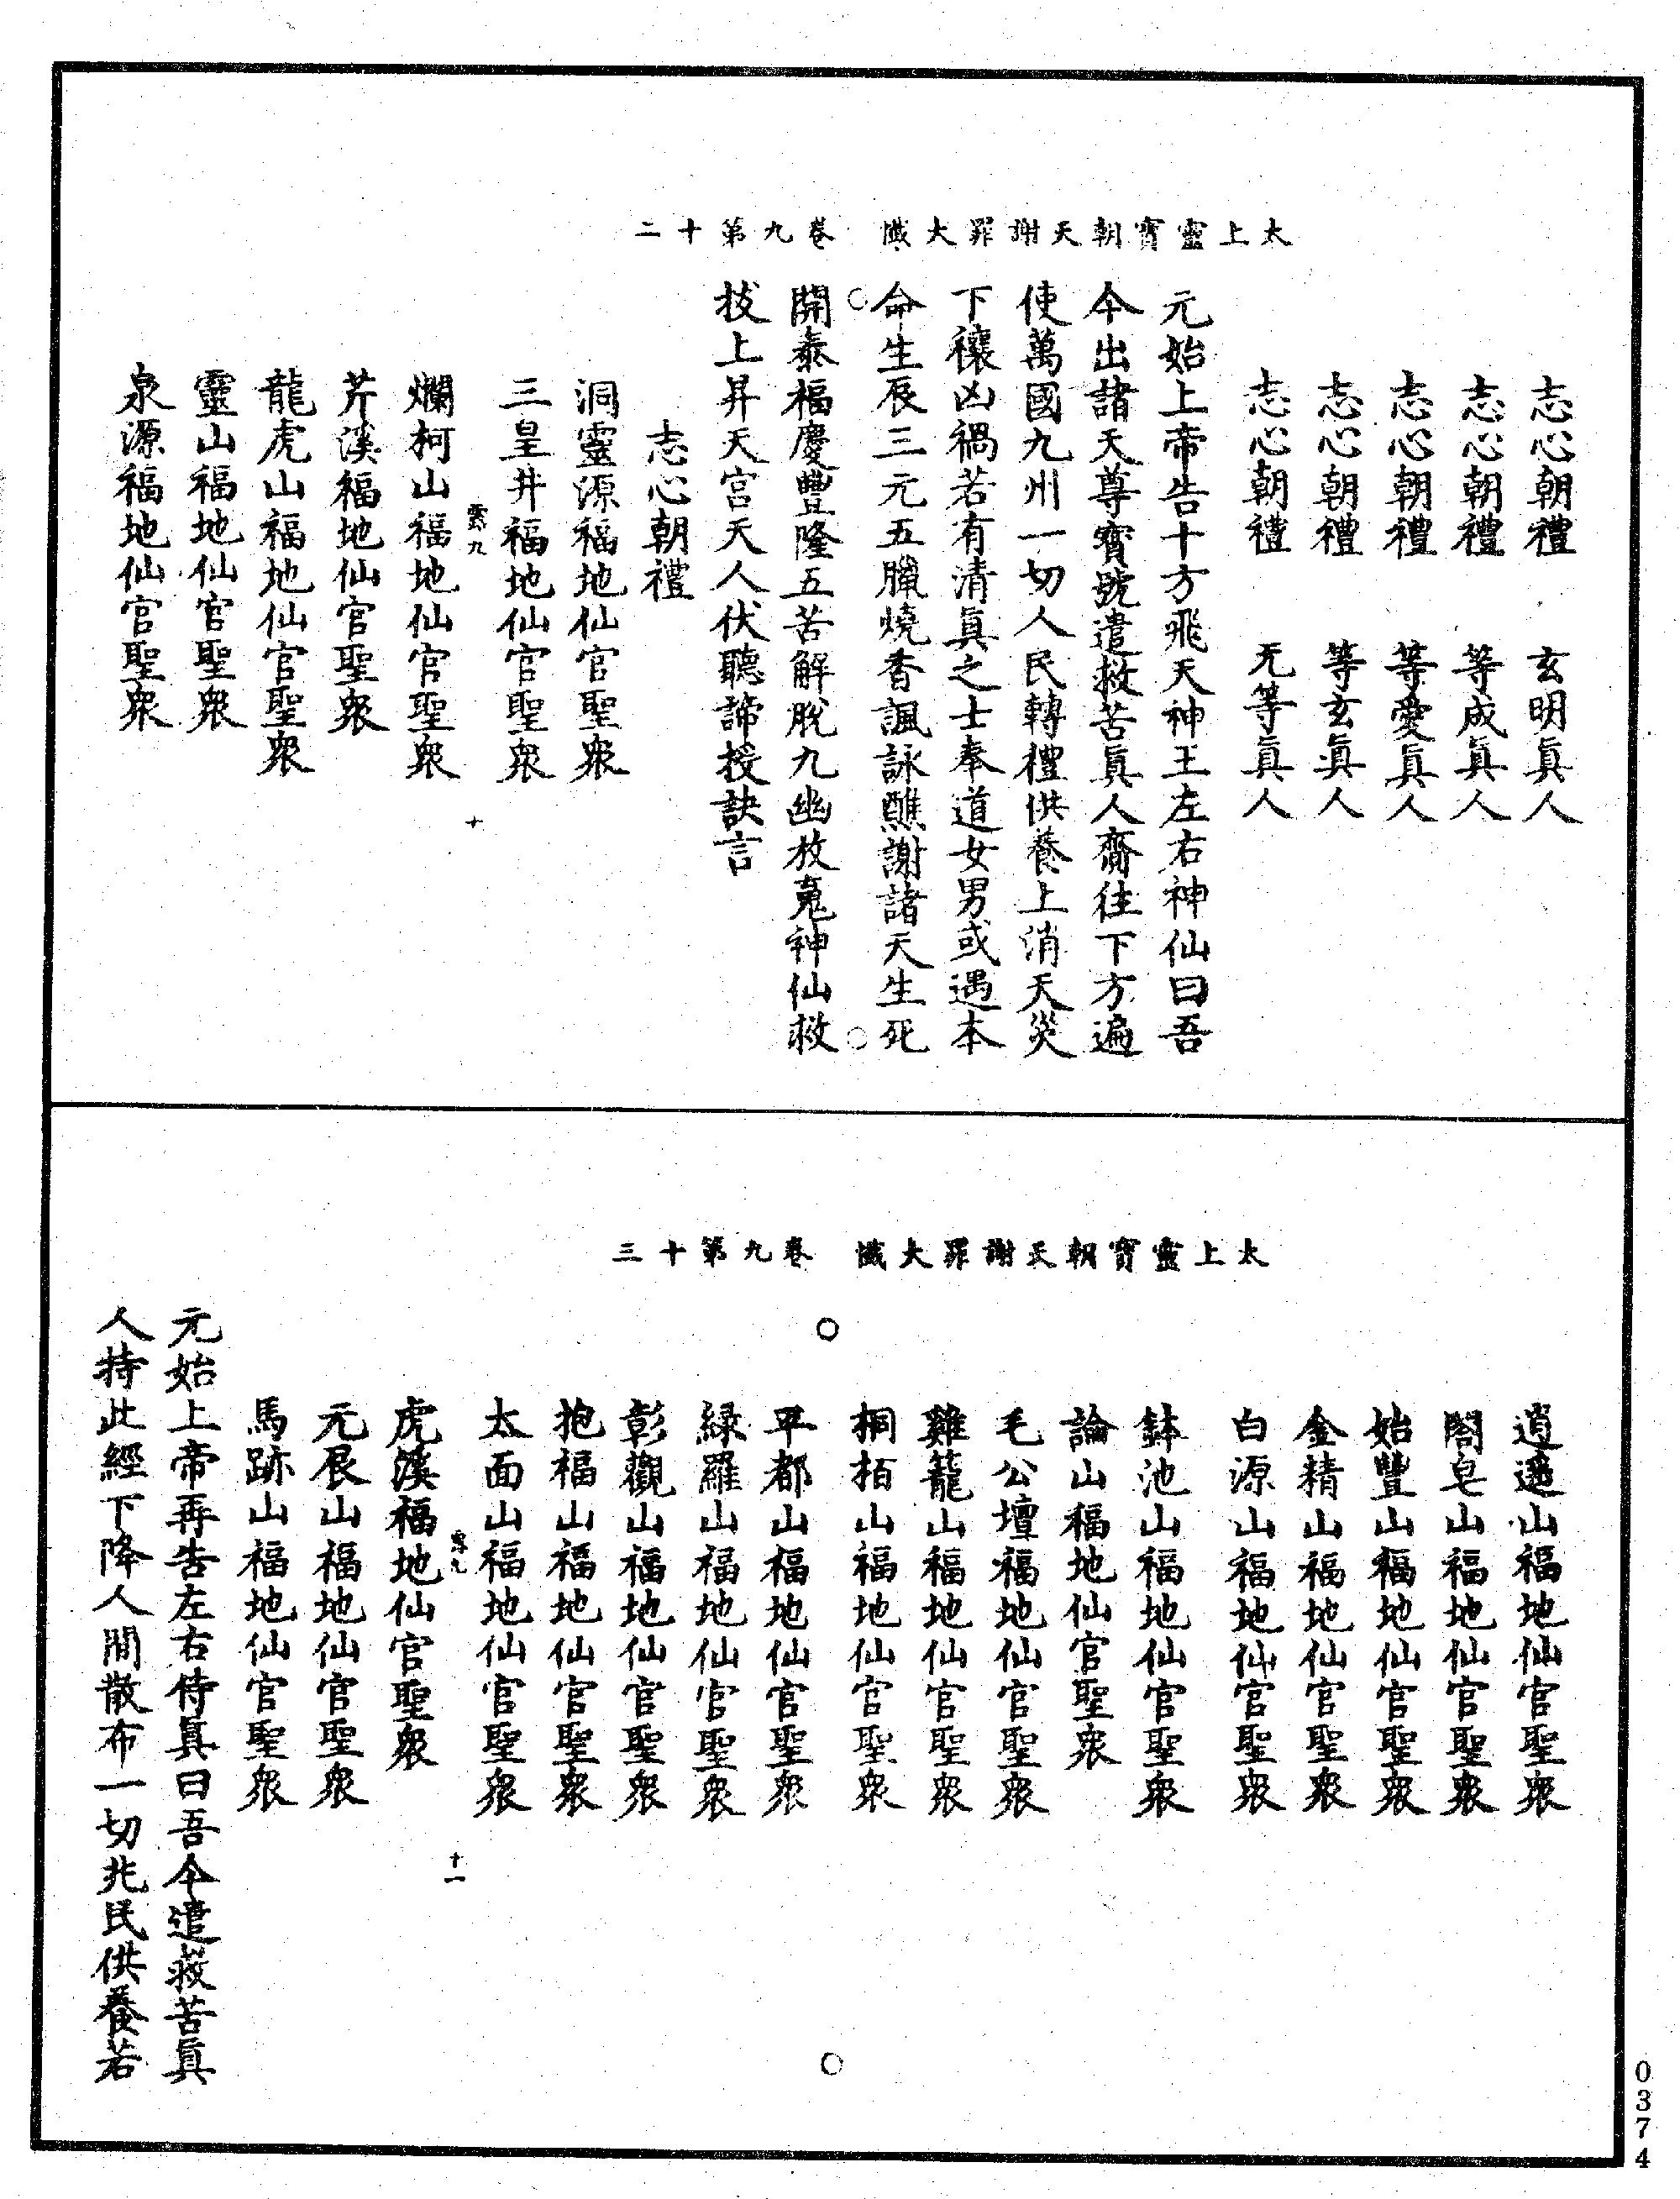 太上靈寶朝天謝罪大懺　卷九第十二
志心朝禮　玄明眞人
志心朝禮　等成眞人
志心朝禮　等愛眞人
志心朝禮　等玄眞人
志心朝禮　无等眞人
元始上帝告十方飛天神王左右神仙曰吾
今出諸天尊寶號遣救苦眞人齎往下方遍
使萬國九州一切人民轉禮供養上消天災
下禳凶禍若有清眞之士奉道女男或遇本
命生辰三元五臘燒香諷詠醮謝諸天生死
開泰福慶豐隆五苦解脫九幽放䰟神仙救
拔上昇天宮天人伏聽諦授訣言
志心朝禮
洞靈源福地仙官聖衆
三皇井福地仙官聖衆
雲九　十
爛柯山福地仙官聖衆
芹溪福地仙官聖衆
龍虎山福地仙官聖衆
靈山福地仙官聖衆
泉源福地仙官聖衆
太上靈寶朝天謝罪大懺　卷九第十三
逍遥山福地仙官聖衆
閤皂山福地仙官聖衆
始豐山福地仙官聖衆
金精山福地仙官聖衆
白源山福地仙官聖衆
鉢池山福地仙官聖衆
論山福地仙官聖衆
毛公壇福地仙官聖衆
雞籠山福地仙官聖衆
桐栢山福地仙官聖衆
平都山福地仙官聖衆
緑羅山福地仙官聖衆
彰觀山福地仙官聖衆
抱福山福地仙官聖衆
太面山福地仙官聖衆
九　十一
虎溪福地仙官聖衆
元辰山福地仙官聖衆
馬跡山福地仙官聖衆
元始上帝再告左右侍眞曰吾今遣救苦眞
人持此經下降人間散布一切兆民供養若
0374